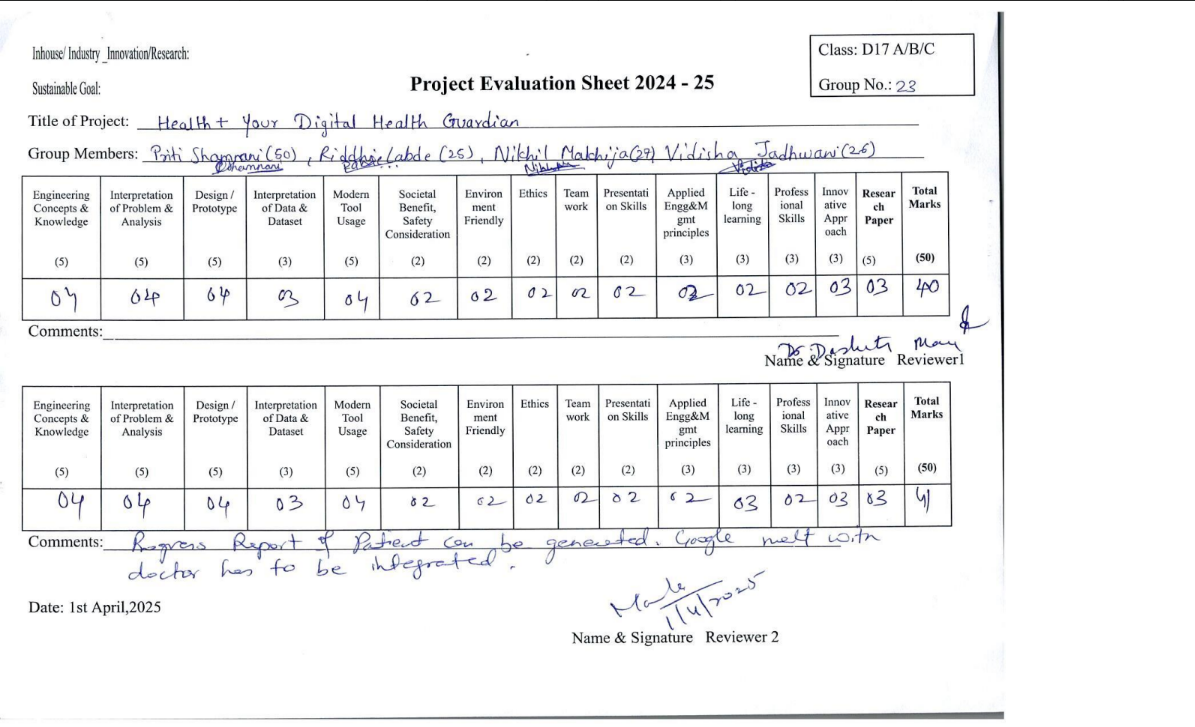 Inhouse/ Industry _Innovation/Research:
Class: D17 A/B/C
Sustainable Goal:
Project Evaluation Sheet 2024 - 25
Group No.: 23
Title of Project: Health+ Your Digital Health Guardian
Group Members: Priti Shamnani (50), Riddhie Labde (25), Nikhil Makhija (29) Vidisha Jadhwani (26)
Engineering Concepts & Knowledge (5) Interpretation of Problem & Analysis (5) Design / Prototype (5) Interpretation of Data & Dataset (3) Modern Tool Usage (5) Societal Benefit, Safety Consideration (2) Environ ment Friendly (2) Ethics (2) Team work (2) Presentati on Skills (2) Applied Engg&M gmt principles (3) Life - long learning (3) Profess ional Skills (3) Innov ative Appr oach (3) Resear ch Paper (5) Total Marks (50)
04 04 04 03 04 02 02 02 02 02 02 02 02 03 03 40
Comments:
Name & Signature Reviewer1
Engineering Concepts & Knowledge (5) Interpretation of Problem & Analysis (5) Design / Prototype (5) Interpretation of Data & Dataset (3) Modern Tool Usage (5) Societal Benefit, Safety Consideration (2) Environ ment Friendly (2) Ethics (2) Team work (2) Presentati on Skills (2) Applied Engg&M gmt principles (3) Life - long learning (3) Profess ional Skills (3) Innov ative Appr oach (3) Resear ch Paper (5) Total Marks (50)
04 04 04 03 04 02 02 02 02 02 02 03 02 03 03 41
Comments: Progress Report of Patient can be generated. Google meet with
doctor has to be integrated.
1/4/2025
Date: 1st April,2025
Name & Signature Reviewer 2